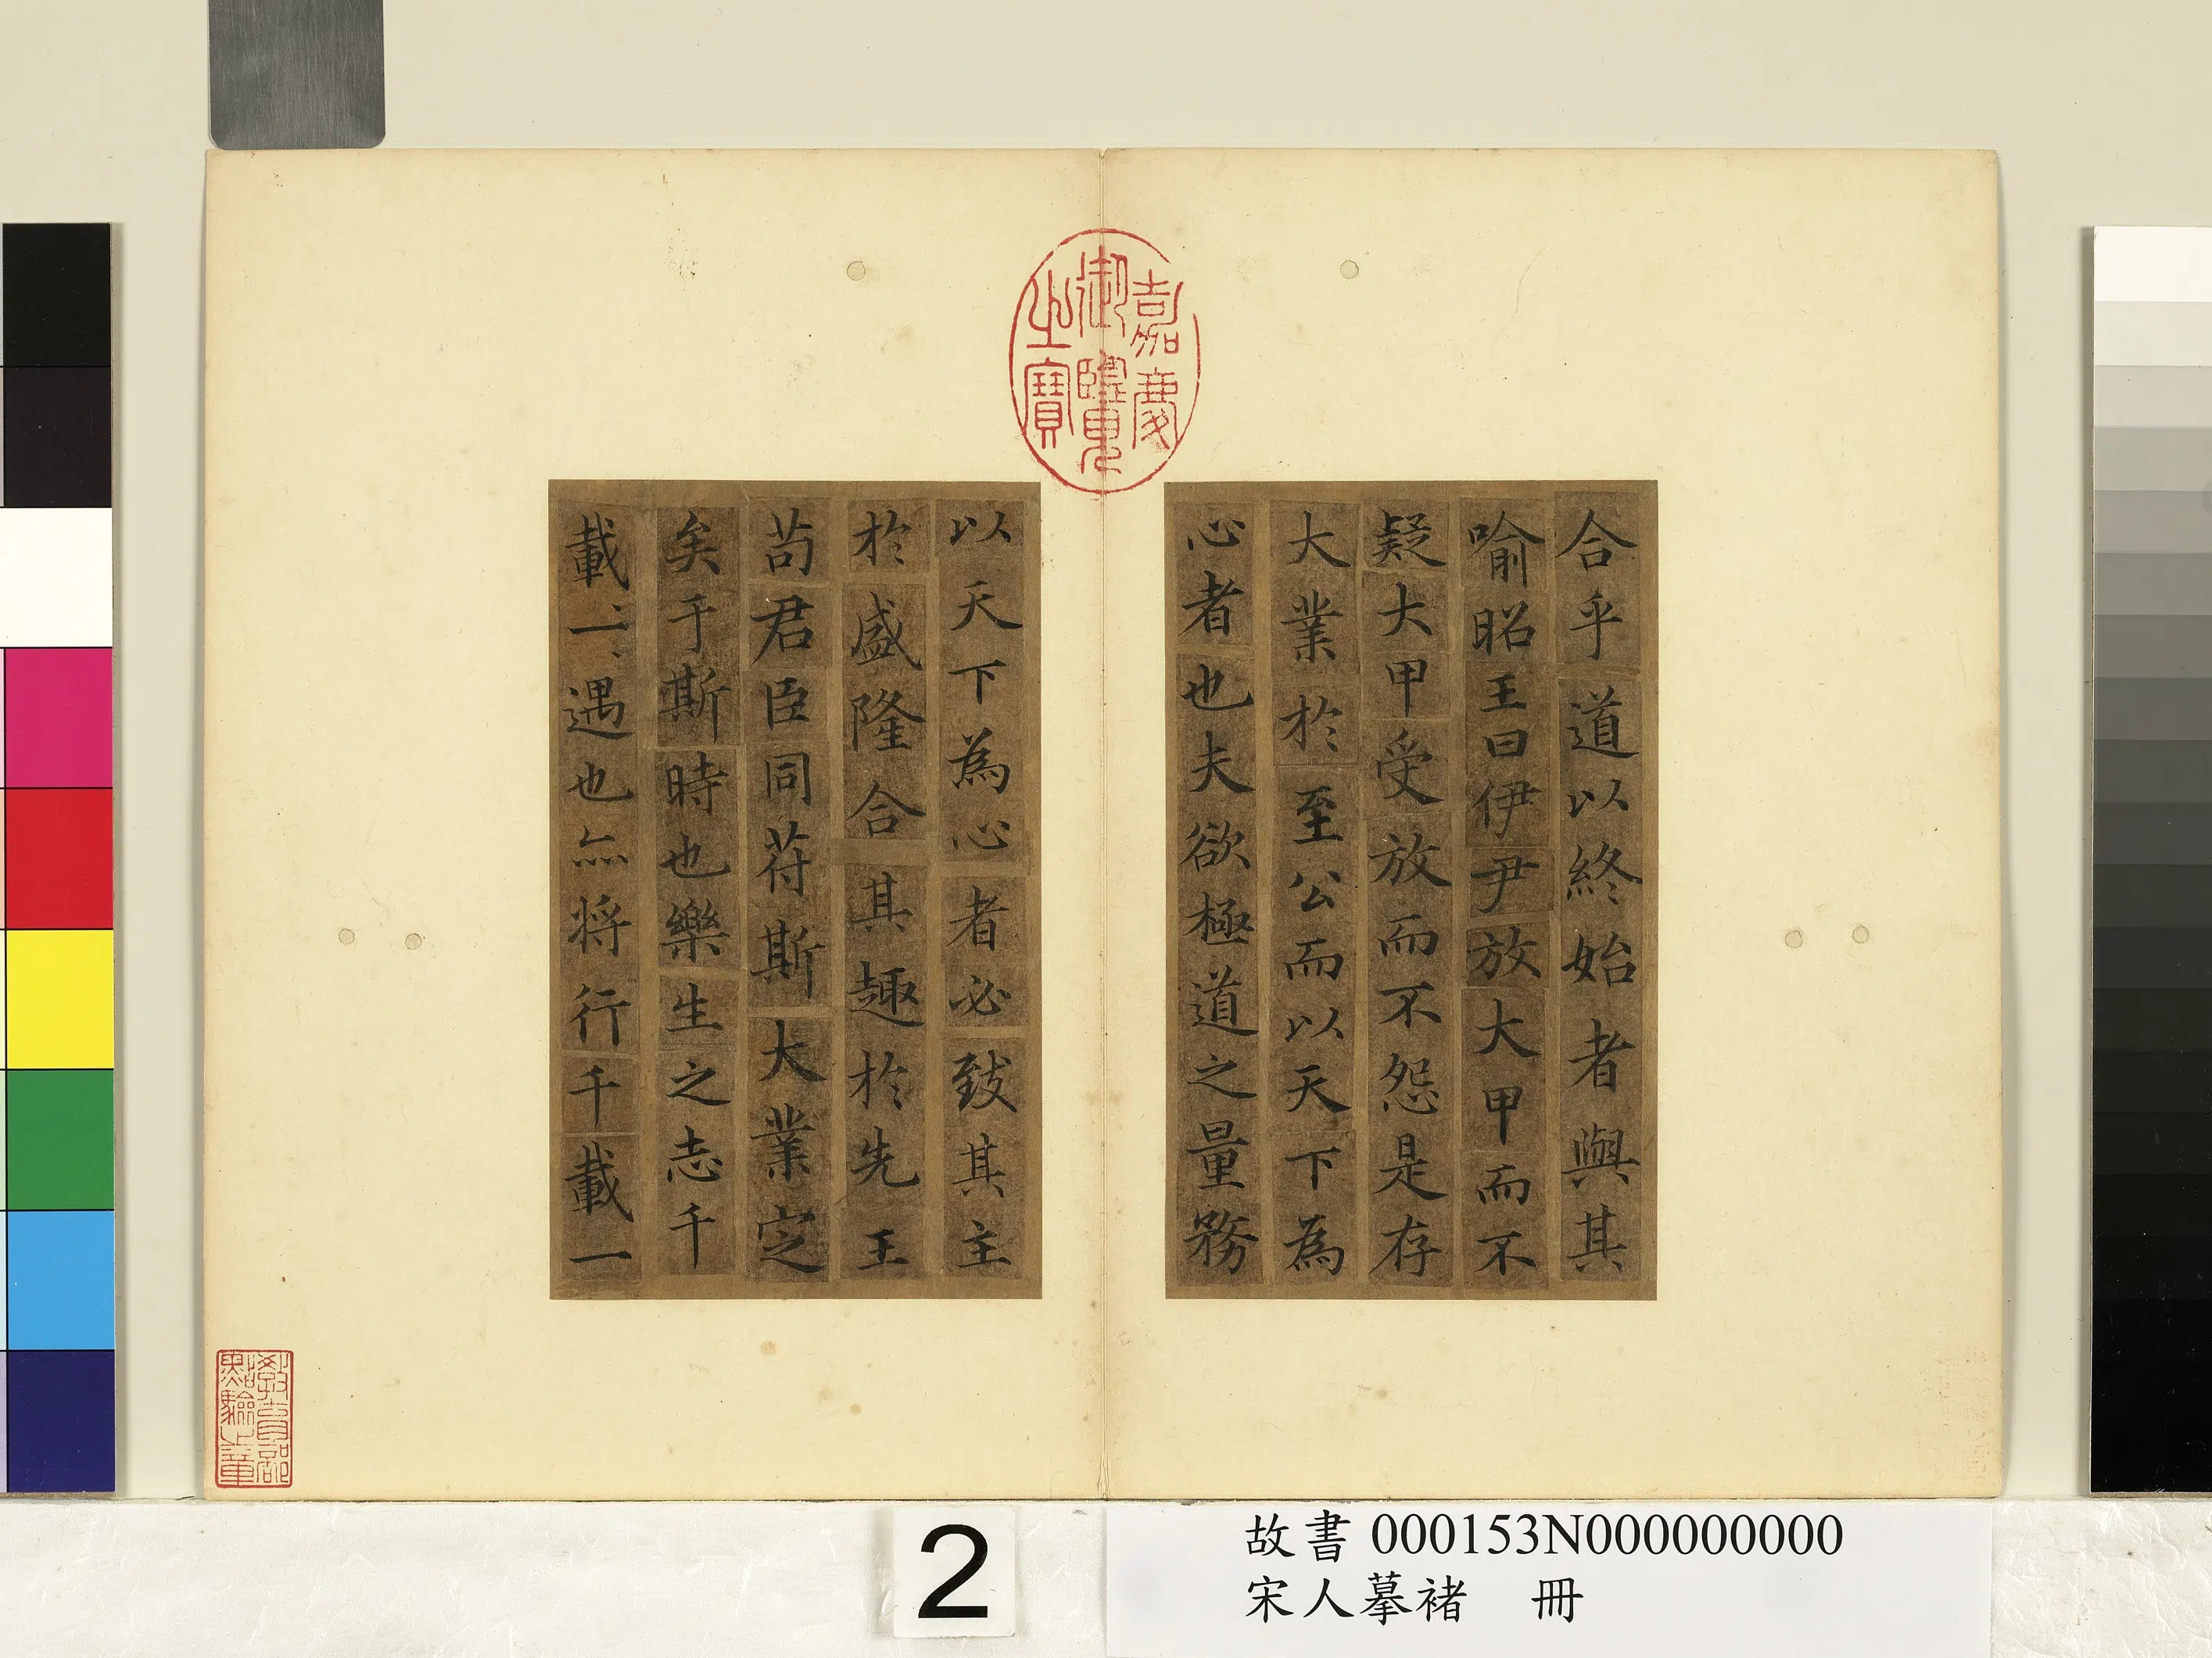 嘉慶御覽之寶
合乎道以終始者與其
喻昭王曰伊尹放大甲而不
疑大甲受放而不怨是存
大業於至公而以天下為
心者也夫欲極道之量務
以天下為心者必致其主
於盛隆合其趣於先王
苟君臣同苻斯大業定
矣于斯時也樂生之志千
載一遇也亦將行千載一
教育部點驗之章
2
故書 000153N000000000
宋人摹褚 冊